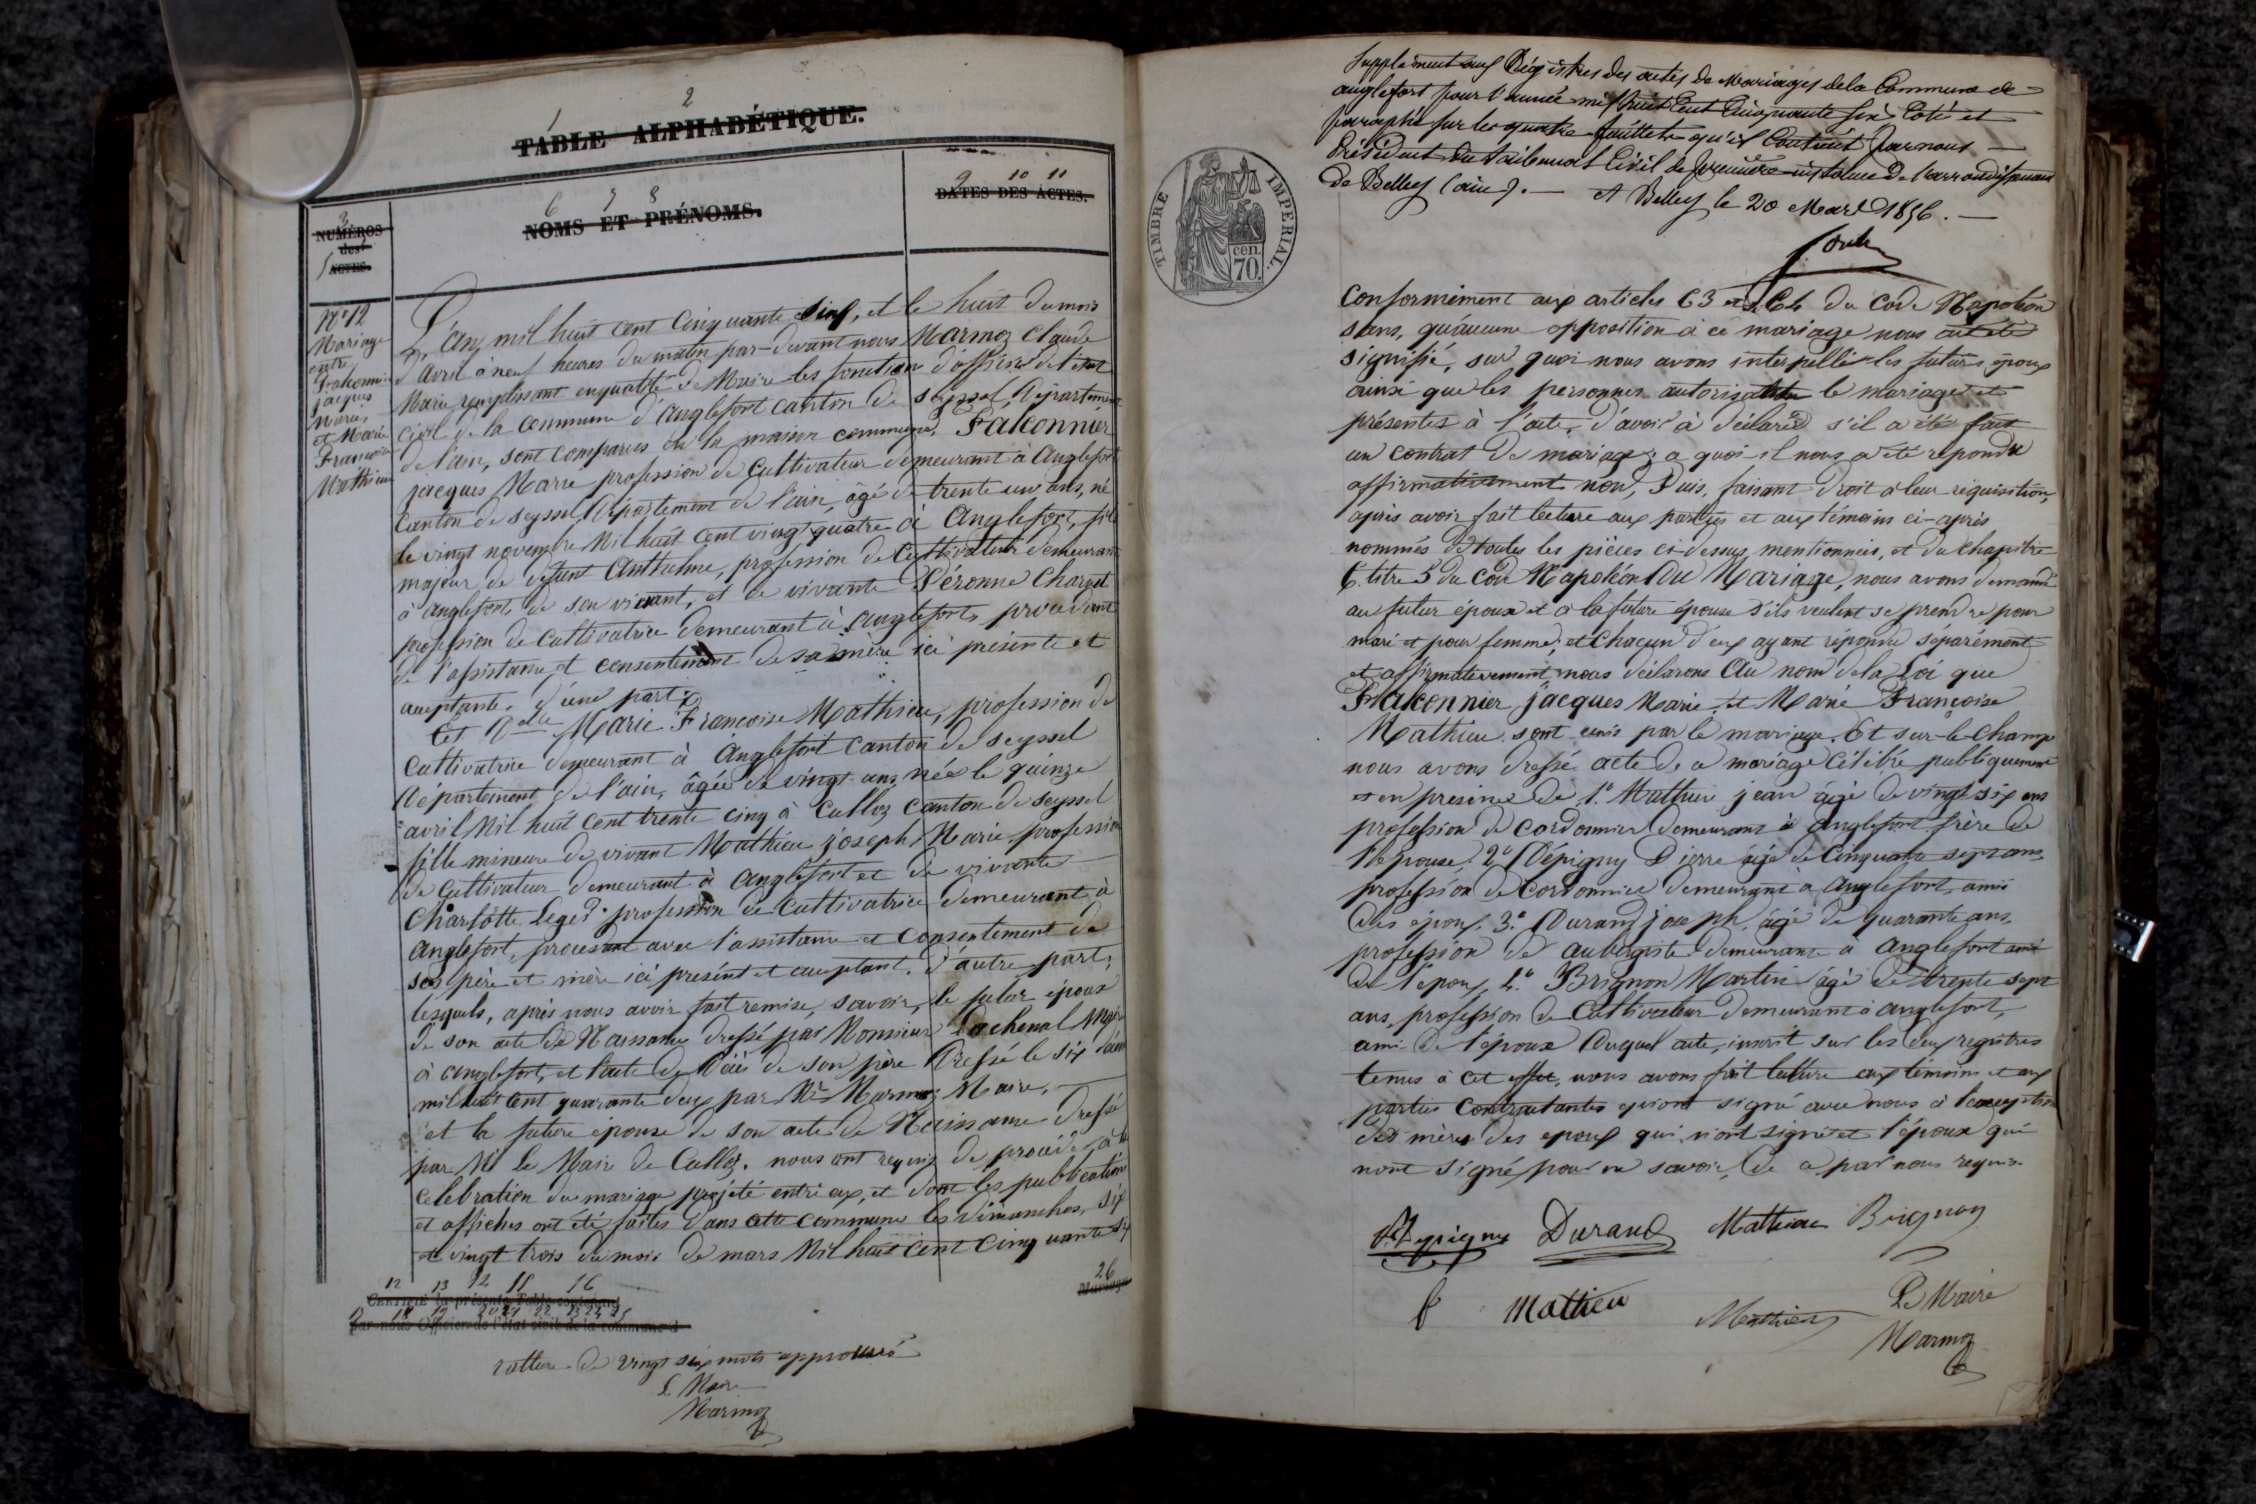 1 2
TABLE ALPHABÉTIQUE.
3
NUMÉROS
des
5
ACTES.
6 7 8
NOMS ET PRÉNOMS.
9 10 11
DATES DES ACTES.
N° 12
Mariage
entre
Falconnier
jacques
Marie,
et Marie
Françoise
Mathieu
L'an mil huit cent cinquante six, et le huit du mois
d'avril à neuf heures du matin par-devant nous Marmoz Claude
Marie remplissant en qualité de Maire les fonction d'officier de l'état
civil de la commune d'anglefort canton de seyssel, Département
de l'ain, sont comparus en la maison commune, Falconnier
jacques Marie profession de Cultivateur demeurant à Anglefort
Canton de seyssel Département de l'ain, âgé de trente un ans, né
le vingt novembre Mil huit cent vingt quatre à Anglefort, fils
majeur de défunt Anthelme, profession de Cultivateur demeurant
à anglefort de son vivant, et de vivante Péronne Charvet
profession de Cultivatrice demeurant à anglefort, procédant
de l'assistance et consentement de sa mère ici présente et
acceptante. d'une part;
Et Delle Marie Françoise Mathieu, profession de
Cultivatrice demeurant à Anglefort Canton de seyssel
Département de l'ain, âgée de vingt ans née le quinze
avril Mil huit cent trente cinq à Culloz canton de seyssel
fille mineure de vivant Mathieu joseph Marie profession
de Cultivateur demeurant à anglefort et de vivante
Charlotte Leger profession de Cultivatrice demeurant à
anglefort, procédant avec l'assistance et consentement de
ses père et mère ici présent et acceptant. d'autre part;
lesquels, après nous avoir fait remise, savoir, le futur époux
de son acte de Naissance dressé par Monsieur Lachenal Maire
à anglefort, et l'acte de Décès de son père Dressé le six
mil huit cent quarante deux par Mr Marmoz Maire,
et la future epouse de son acte de Naissance dressé
par Mr Le Maire de Culloz. nous ont requis de procéder à la
celebration du mariage projeté entre eux, et dont les publication
et affiches ont été faites dans cette commune les dimanches, six
et vingt trois du mois de mars Mil huit cent cinquante six
12 13 14 15 16
CERTIFIÉ la présente Table contenant
26
Mariages
17 18 19 20 21 22 23 24 25
par nous Officier de l'état civil de la commune d
rature de vingt six mots approuvés
Le Maire
Marmoz
Supplément aux Régistres des actes de Mariages de la Commune de
anglefort pour l'année mil huit Cent Cinquante six Coté et
paraphé sur les quatre feuillets qu'il Contient Par nous
Président du tribunal Civil de Première instance de l'arrondissement
de Belley (ain). — A Belley le 20 Mars 1856. —
TIMBRE IMPÉRIAL.
cen.
70.
Conformément aux articles 63 et 64 du Code Napoléon
sans, qu'aucune opposition à ce mariage nous ait été
signifié, sur quoi nous avons interpellé les futurs époux
ainsi que les personnes autorisant le mariage et
présentes à l'acte, d'avoir à déclarer s'il a été fait
un contrat de mariage; a quoi il nous a été répondu
affirmativement non, Puis, faisant droit à leur réquisition,
après avoir fait lecture aux parties et aux témoins ci-après
nommés de toutes les pièces ci-dessus mentionnées, et du chapitre
6. titre 5 du Code Napoléon Du Mariage, nous avons demandé
au futur époux et à la future épouse s'ils veulent se prendre pour
mari et pour femme, et chacun d'eux ayant répondu séparément
et affirmativement, nous déclarons Au nom de la Loi que
Falconnier jacques Marie et Marie Françoise
Mathieu sont unis par le mariage. Et sur-le-champ
nous avons dressé acte de ce mariage célébré publiquement
et en présence de 1° Mathieu jean âgé de vingt six ans
profession de cordonnier demeurant à anglefort frère de
l'épouse, 2° Dépigny Pierre âgé de Cinquante sept ans
profession de Cordonnier demeurant à Anglefort, ami
des époux, 3° Durand joseph, âgé de quarante ans
profession de aubergiste demeurant à anglefort ami
de l'époux 4° Brignon Martin âgé de trente sept
ans, profession de Cultivateur demeurant à anglefort,
ami de l'époux Duquel acte, inscrit sur les deux registres
tenus à cet effet, nous avons fait lecture aux témoins et aux
parties contractantes qui ont signé avec nous à l'exception
des mères des époux qui n'ont signé et l'époux qui
n'ont signé pour ne savoir, de ce par nous requis
Depigny Durand Mathieu Brignon
Mathieu Mathieu Le Maire
Marmoz